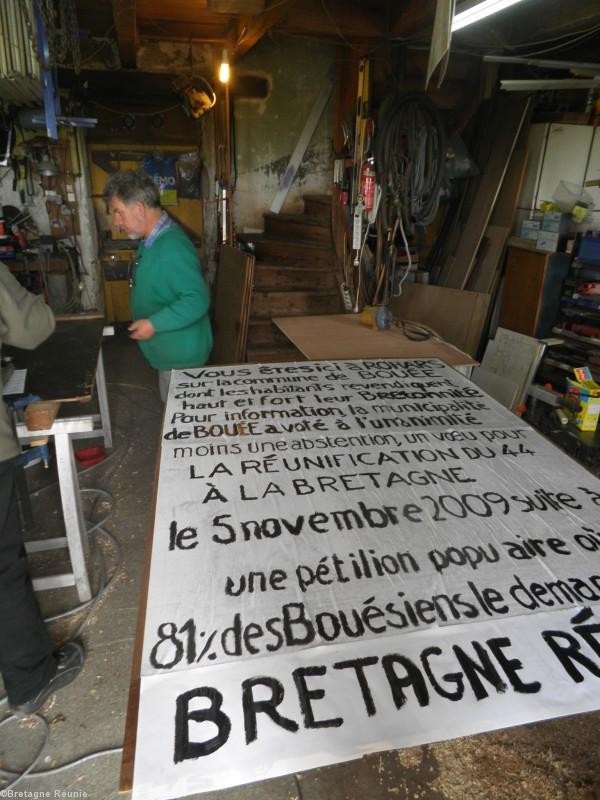 VOUS ÊTES ICI à ROMARS
sur la commune de BOUÉE
dont les habitants revendiquent
haut et fort leur BRETONNITÉ
Pour information, la municipalité
de BOUÉE a voté à l'unanimité
moins une abstention, un vœu pour
LA RÉUNIFICATION DU 44
À LA BRETAGNE
le 5 novembre 2009 suite à
une pétition popu aire où
81% des Bouésiens le dema
BRETAGNE RÉ
©Bretagne Réunie